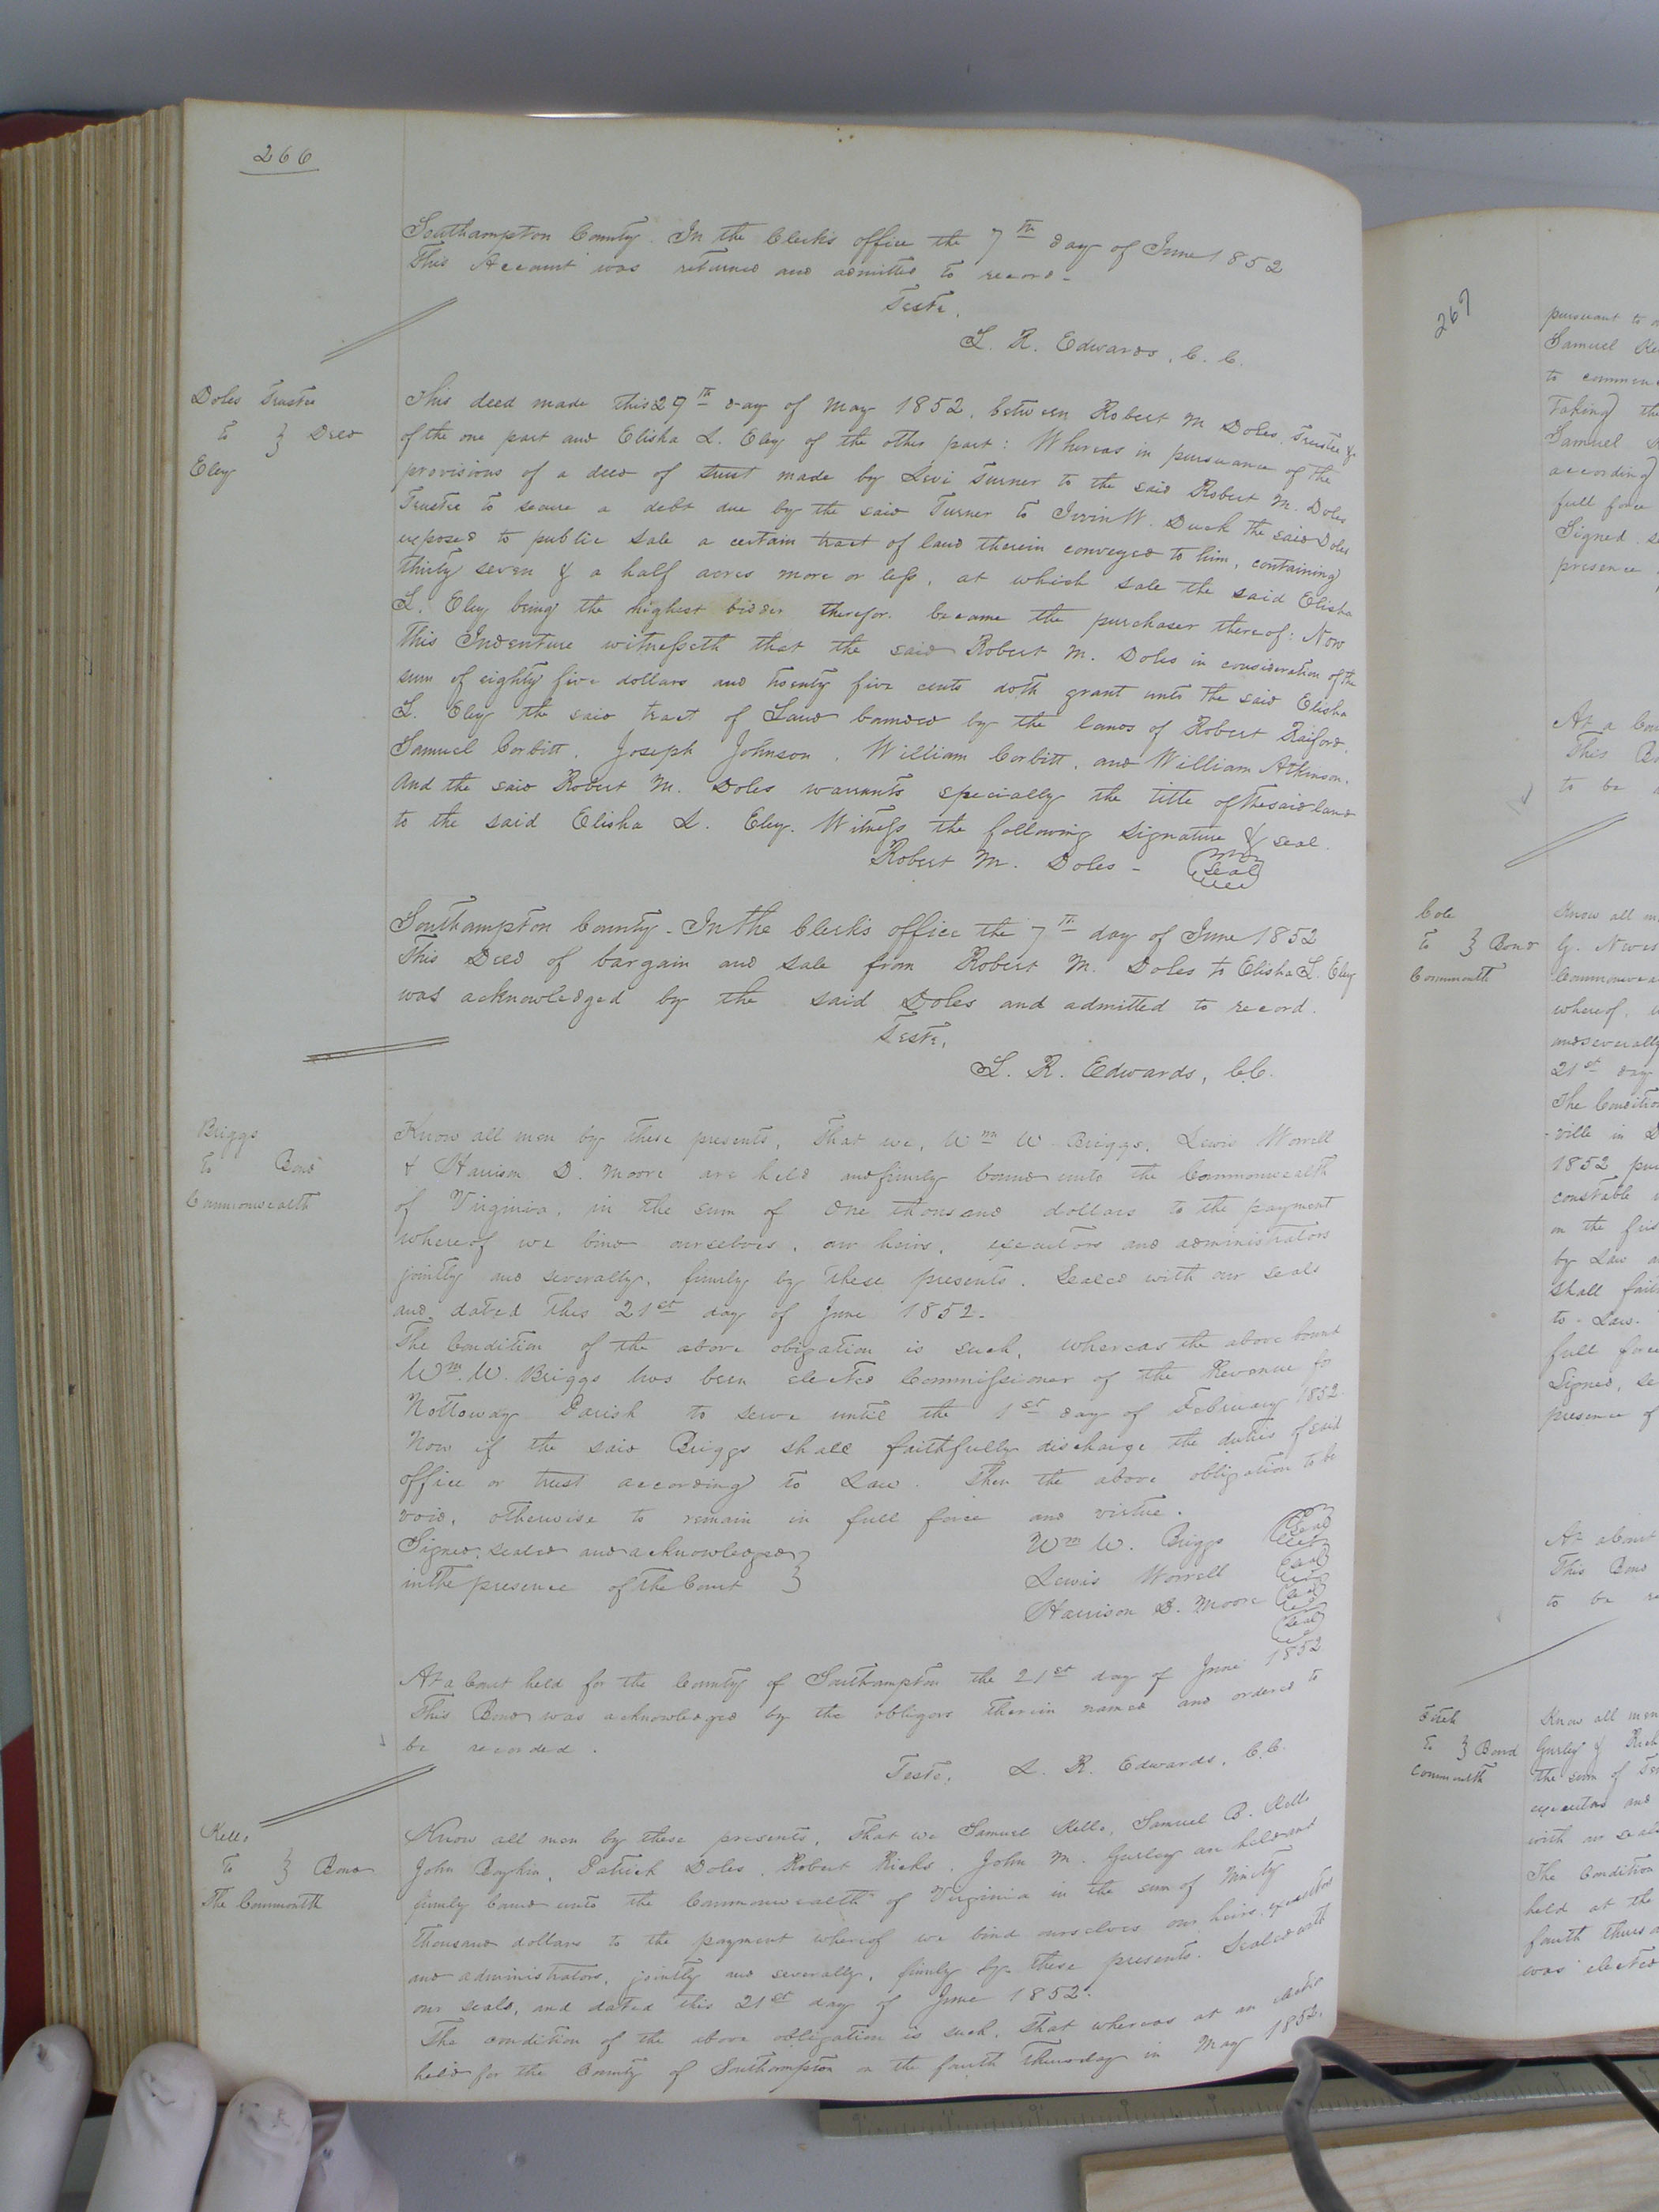 266
Southampton County. In the Clerk's office the 7th day of June 1852
This Account was returned and admitted to record -
Teste,
L. R. Edwards, C. C.
Doles Trustee
to } Deed
Eley
This deed made this 29th day of May 1852, between Robert M Doles, Trustee &c
of the one part and Elisha L. Eley of the other part: Whereas in pursuance of the
provisions of a deed of trust made by Levi Turner to the said Robert M. Doles
Trustee to secure a debt due by the said Turner to Irvin W. Duck the said Doles
exposed to public sale a certain tract of land therein conveyed to him, containing
thirty seven & a half acres more or less, at which sale the said Elisha
L. Eley being the highest bidder therefor became the purchaser thereof: Now
This Indenture witnesseth that the said Robert M. Doles in consideration of the
sum of eighty five dollars and twenty five cents doth grant unto the said Elisha
L. Eley the said tract of Land bounded by the lands of Robert Raiford,
Samuel Corbitt, Joseph Johnson, William Corbitt, and William Atkinson.
And the said Robert M. Doles warrants specially the title of the said land
to the said Elisha L. Eley. Witness the following signature & seal.
Robert M. Doles - Seal
Southampton County - In the Clerk's office the 7th day of June 1852
This Deed of bargain and sale from Robert M. Doles to Elisha L. Eley
was acknowledged by the said Doles and admitted to record.
Teste,
L. R. Edwards, C.C.
Briggs
to Bond
Commonwealth
Know all men by these presents, That we, Wm W. Briggs, Lewis Worrell
& Harrison D. Moore are held and firmly bound unto the Commonwealth
of Virginia, in the sum of One thousand dollars to the payment
whereof we bind ourselves, our heirs, executors and administrators
jointly and severally, firmly by these presents. Sealed with our seals
and dated this 21st day of June 1852.
The Condition of the above obligation is such, whereas the above bound
Wm. W. Briggs has been elected Commissioner of the Revenue for
Nottoway Parish to serve until the 1st day of February 1852.
Now if the said Briggs shall faithfully discharge the duties of said
office or trust according to Law. Then the above obligation to be
void, otherwise to remain in full force and virtue.
Signed, sealed and acknowledged }
in the presence of the Court }
Wm W. Briggs Seal
Lewis Worrell Seal
Harrison D. Moore Seal
Seal
At a Court held for the County of Southampton the 21st day of June 1852
This Bond was acknowledged by the obligors therein named and ordered to
be recorded.
Teste, L. R. Edwards, C.C.
Kello
to } Bond
The Commonth
Know all men by these presents, That we Samuel Kello, Samuel B. Kello
John Boykin, Patrick Doles, Robert Ricks, John M. Gurley are held and
firmly bound unto the Commonwealth of Virginia in the sum of Ninty
thousand dollars to the payment whereof we bind ourselves our heirs, executors
and administrators, jointly and severally, firmly by these presents. Sealed with
our seals, and dated this 21st day of June 1852.
The condition of the above obligation is such, that whereas at an
held for the County of Southampton on the fourth Thursday in May 1852.
267
pursuant to
Samuel
to
Taking the
Samuel
according
full force
Signed
presence
At a
This
to be
Cole
to } Bond
Commonth
Know all
G.
whereof,
and severally
21st day
The Conditio
ville in
1852
constable
on the
by Law
shall fail
to Law.
full force
Signed, se
presence of
At a Court
This Bond
to be
to } Bond
Commonth
Know all men
Gurley &
the sum of
executors and
with our seals
The Condition
held at the
fourth thurs
was elected